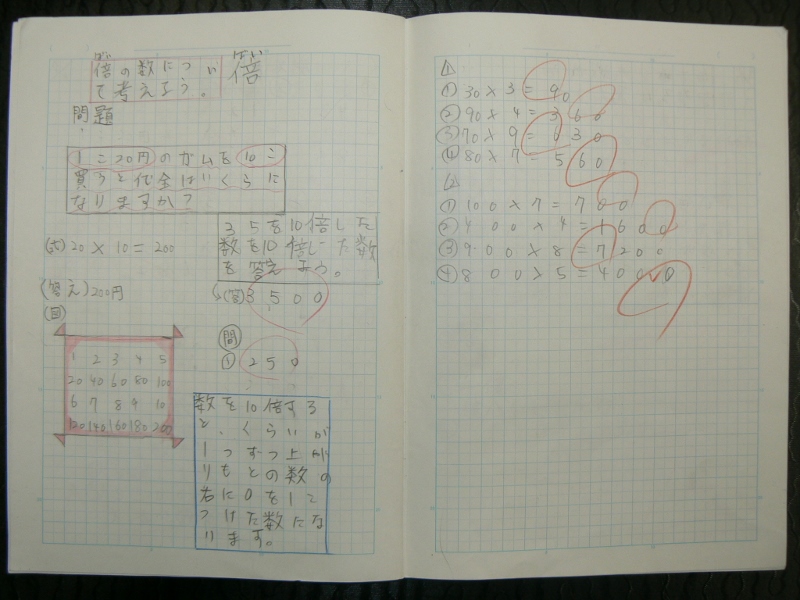 ばい
倍の数につい
て考えよう。
ばい
倍
問題
1こ20円のガムを10こ
買うと代金はいくらに
なりますか?
(式)20×10=200
(答え)200円
(図)
1 2 3 4 5
20 40 60 80 100
6 7 8 9 10
120 140 160 180 200
35を10倍した
数を10倍した数
を答えよう。
(答)3500
問
① 250
数を10倍する
と、くらいが
1つずつ上が
りもとの数の
右に0を1こ
つけた数にな
ります。
① 30×3=90
② 90×4=360
③ 70×9=630
④ 80×7=560
① 100×7=700
② 400×4=1600
③ 900×8=7200
④ 800×5=4000